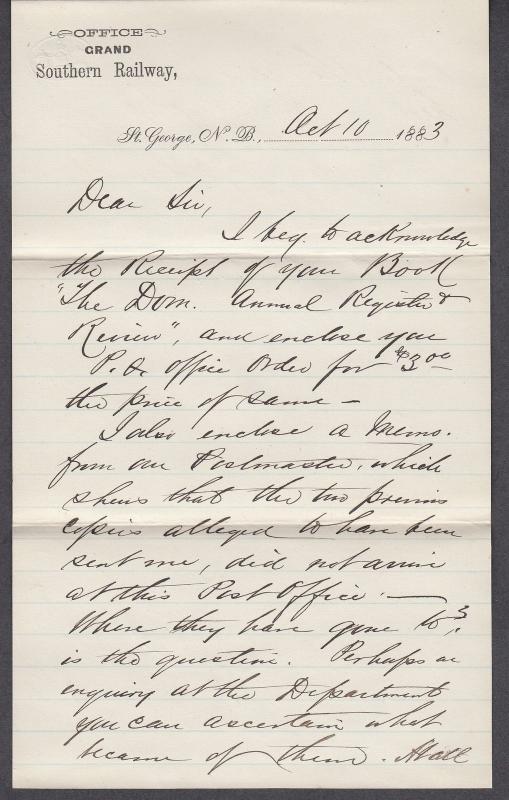 OFFICE
GRAND
Southern Railway,
St. George, N. B., Oct 10 1883
Dear Sir,
I beg to acknowledge
the Receipt of your Book
"The Dom. Annual Register &
Review", and enclose you
P. O. office Order for $3.00
the price of same —
I also enclose a Memo.
from our Postmaster, which
shews that the two previous
copies alleged to have been
sent me, did not arrive
at this Post Office. —
Where they have gone to?
is the question. Perhaps on
enquiry at the Department
you can ascertain what
became of them.